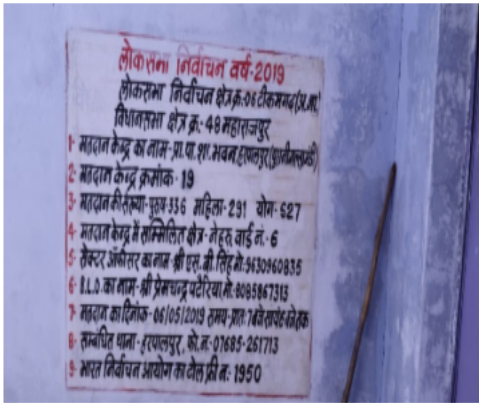 लोकसभा निर्वाचन वर्ष-2019
लोकसभा निर्वाचन क्षेत्र क्र.-06 टीकमगढ़(अ.जा.)
विधानसभा क्षेत्र क्र.- 48 महाराजपुर
1- मतदान केन्द्र का नाम- प्रा.पा.शा. भवन हरपालपुर
2- मतदान केन्द्र क्रमांक- 19
3- मतदान की संख्या- पुरुष-336 महिला-291 योग-627
4- मतदान केन्द्र में सम्मिलित क्षेत्र- नेहरू वार्ड नं.-6
5- सेक्टर ऑफीसर का नाम- श्री एस.बी.सिंह मो:9630960835
6- B.L.O. का नाम- श्री प्रेमचन्द्र पटैरिया मो:8085867313
7- मतदान का दिनांक- 06/05/2019 समय-प्रातः 7बजे सायं 6बजे तक
8- सम्बंधित थाना- हरपालपुर, फो.न. 07685-261713
9- भारत निर्वाचन आयोग का टोल फ्री नं: 1950